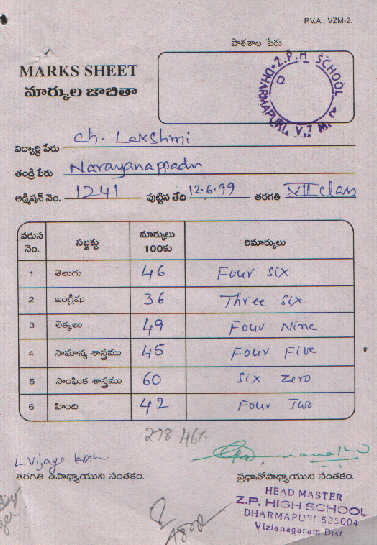 P.V.A. VZM-2.
పాఠశాల పేరు
MARKS SHEET
మార్కుల జాబితా
Z.P.H. SCHOOL
DHARMAPURI, V.Z.M.
విద్యార్థి పేరు Ch. Lakshmi
తండ్రి పేరు
అడ్మిషన్ నెం. 1241 పుట్టిన తేది 12-6-99 తరగతి VII class
వరుస నెం. సబ్జక్టు మార్కులు 100కు రిమార్కులు
1 తెలుగు 46 Four Six
2 ఇంగ్లీషు 36 Three Six
3 లెక్కలు 49 Four Nine
4 సామాన్య శాస్త్రము 45 Four Five
5 సాంఘిక శాస్త్రము 60 Six Zero
6 హింది 42 Four Two
278 46%
L. Vijaya
తరగతి ఉపాధ్యాయుని సంతకం. ప్రధానోపాధ్యాయుని సంతకం.
HEAD MASTER
Z.P. HIGH SCHOOL
DHARMAPURI-535004
Vizianagaram Dist